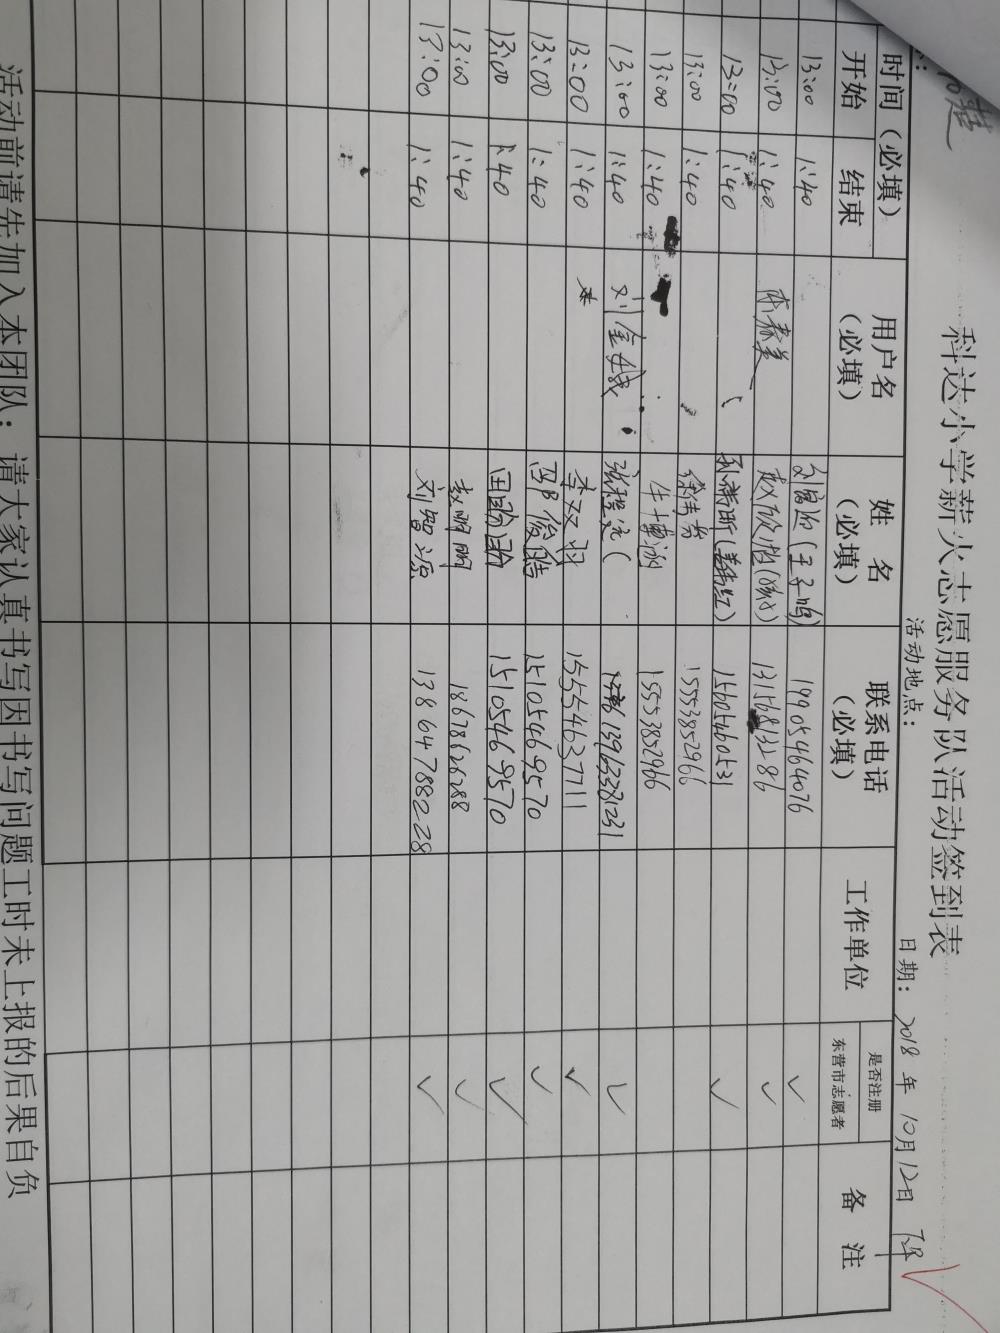 科达小学薪火志愿服务队活动签到表
活动地点： 日期： 2018年10月12日
时间（必填） 用户名（必填） 姓名（必填） 联系电话（必填） 工作单位 是否注册东营市志愿者 备注
开始 结束
13:00 1:40 19905464076 ✓
13:00 1:40 13156813286 ✓
13:00 1:40 15605460531 ✓
13:00 1:40 15553852966
13:00 1:40 牛博涵 15553852966
13:00 1:40 刘金娥 13963381231 ✓
13:00 1:40 李双羽 15554637711 ✓
13:00 1:40 邵俊皓 15105469570 ✓
13:00 1:40 15105469570 ✓
13:00 1:40 赵明明 18678626288 ✓
13:00 1:40 刘智源 13864788228 ✓
活动前请先加入本团队：请大家认真书写因书写问题工时未上报的后果自负